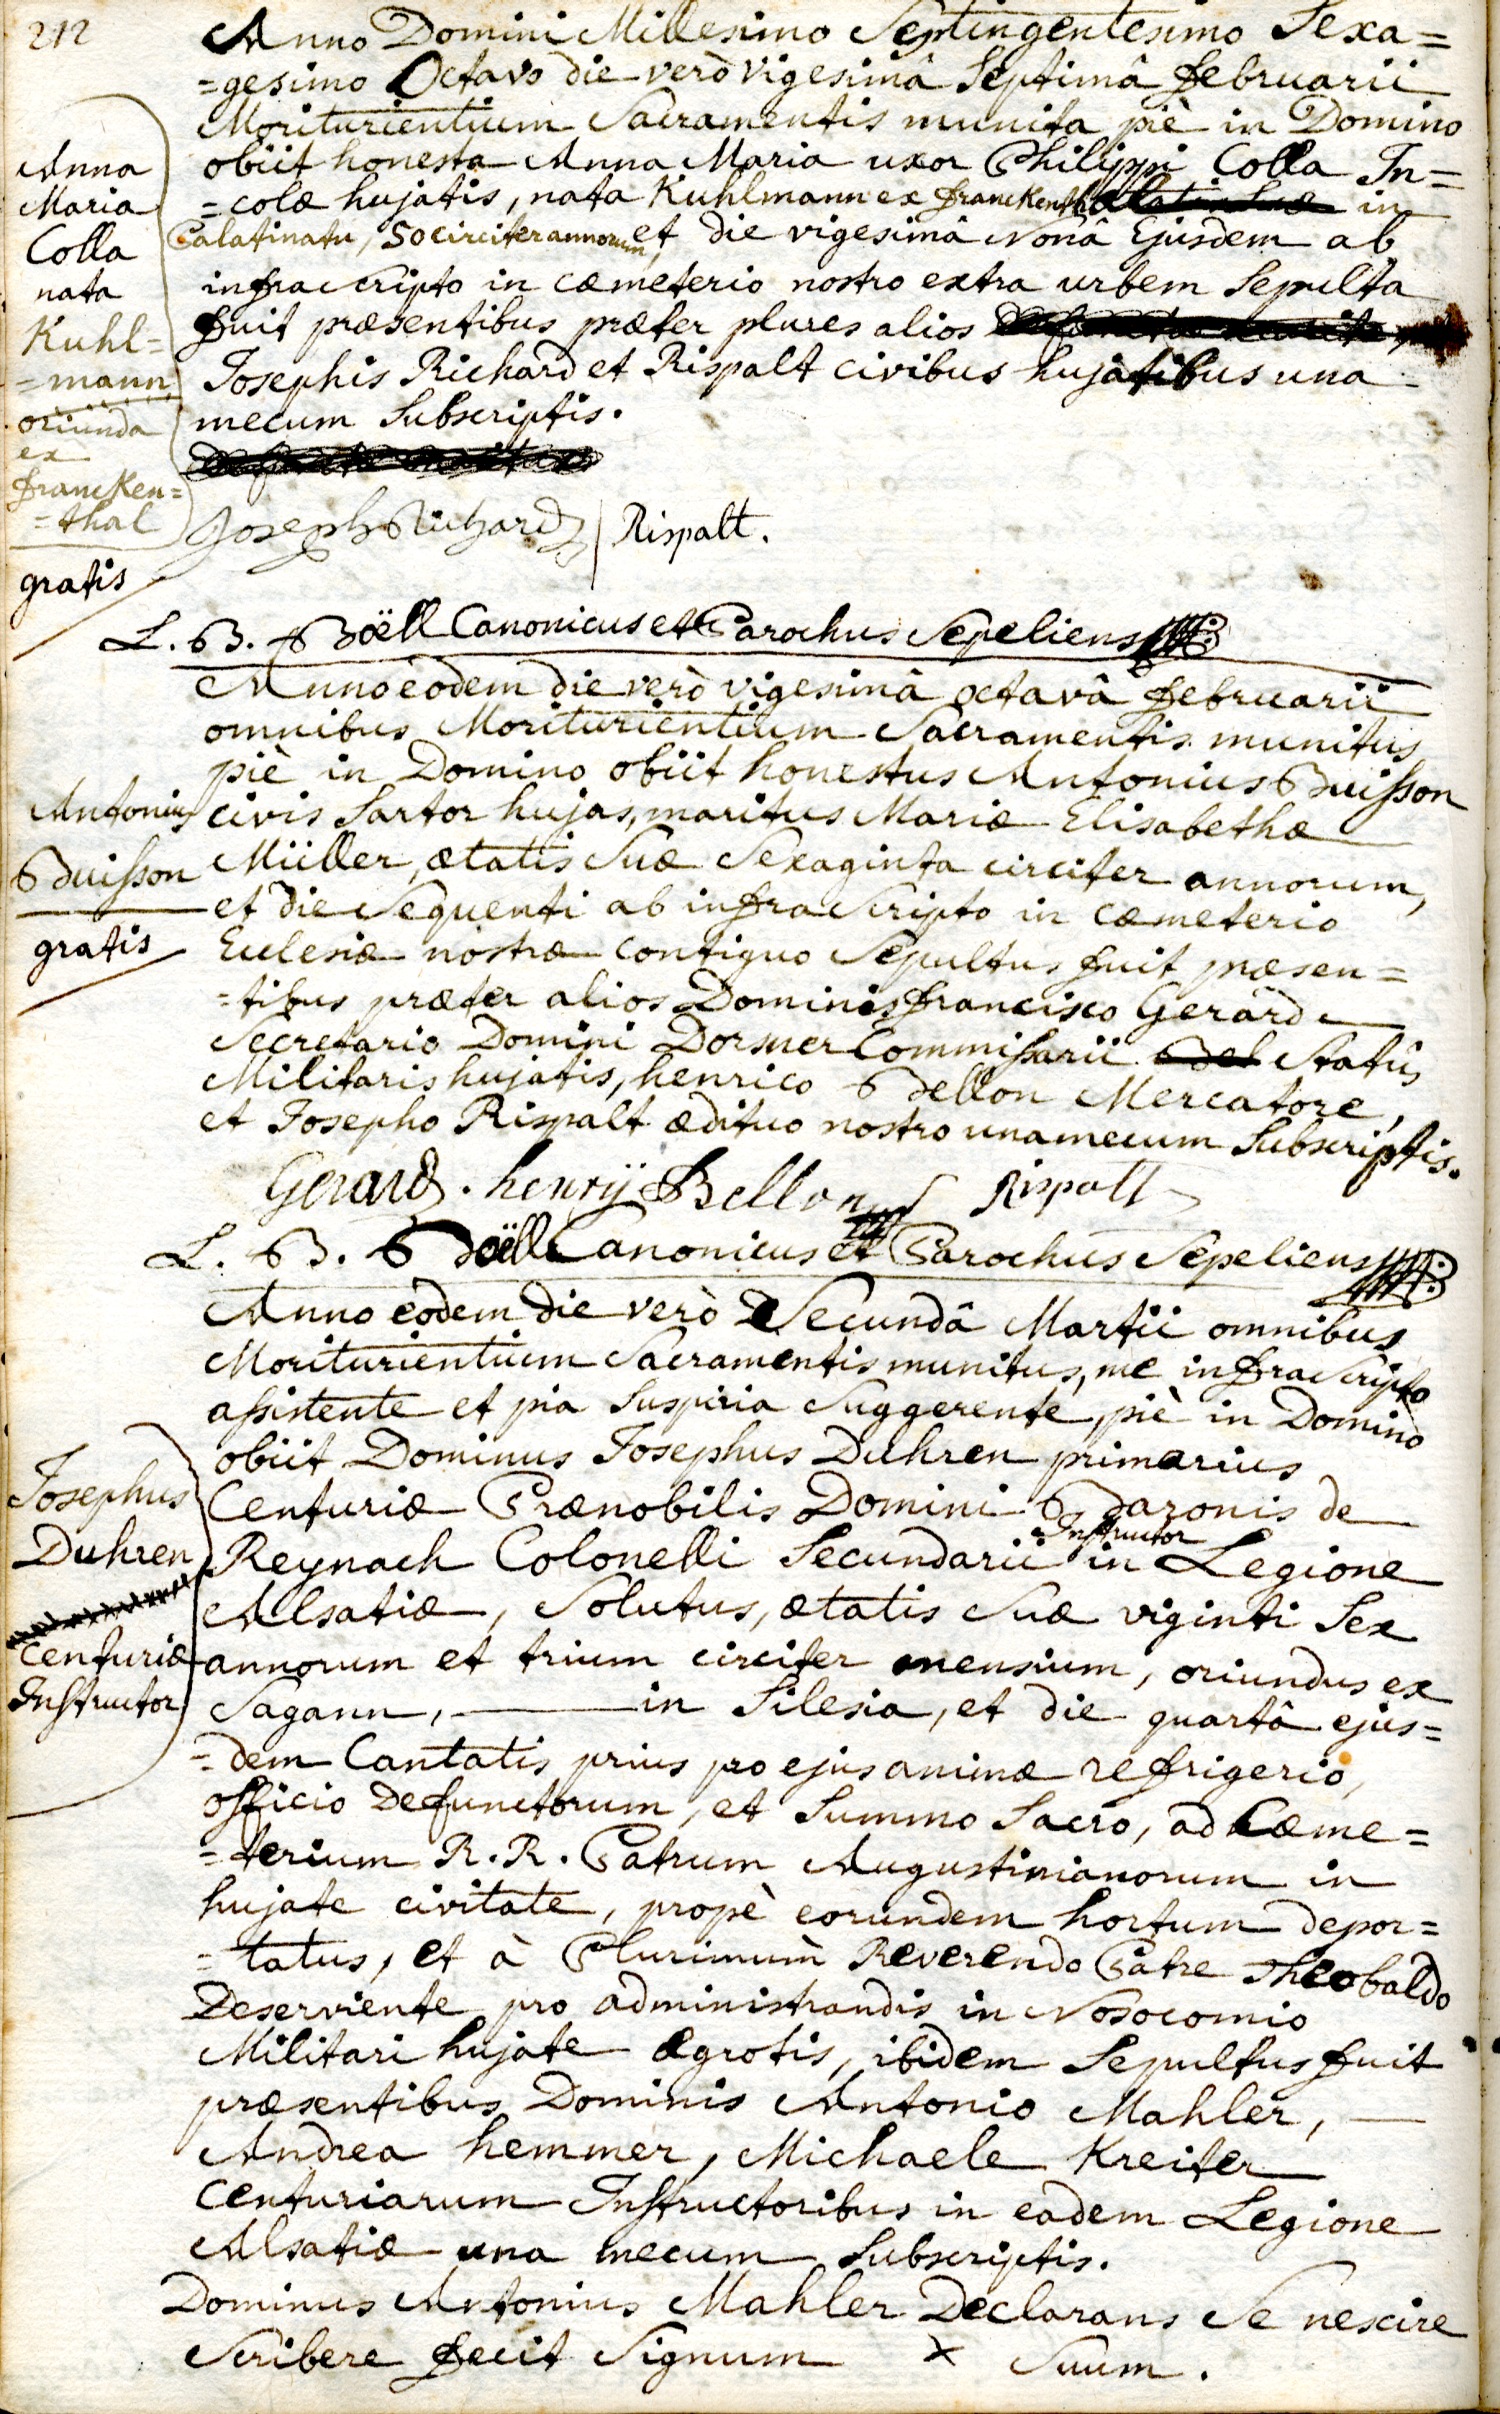 212
Anno Domini Millesimo Septingentesimo Sexa=
=gesimo Octavo die verò vigesimâ Septimâ februarii
Moriturientium Sacramentis munita piè in Domino
obiit honesta Anna Maria uxor Philippi Colla In=
=colæ hujatis, nata Kuhlmann ex franckenthal in
Palatinatu, 50 circiter annorum, et die vigesimâ Nonâ Ejusdem ab
infrascripto in cæmeterio nostro extra urbem Sepulta
fuit præsentibus præter plures alios
Josephis Richard et Rispalt civibus hujatibus una
mecum Subscriptis.
Anna
Maria
Colla
nata
Kuhl=
=mann
oriunda
ex
francken=
=thal
gratis
Joseph Richard Rispalt.
L. B. Boëll Canonicus et Parochus Sepeliens
Anno eodem die verò vigesimâ octavâ februarii
omnibus Moriturientium Sacramentis munitus
piè in Domino obiit honestus Antonius Buisson
civis Sartor hujas, maritus Mariæ Elisabethæ
Müller, ætatis Suæ Sexaginta circiter annorum,
et die Sequenti ab infra Scripto in cæmeterio
Ecclesiæ nostræ contiguo Sepultus fuit præsen=
=tibus præter alios Dominis francisco Gerard
Secretario Domini Dormer Commissarii Bel Statûs
Militaris hujatis, henrico Bellon Mercatore,
et Josepho Rispalt ædituo nostro una mecum Subscriptis.
Antonius
Buisson
gratis
Gerard. henrÿ Bellon Rispalt
L. B. Boëll Canonicus et Parochus Sepeliens
Anno eodem die verò Secundâ Martii omnibus
Moriturientium Sacramentis munitus, me infra Scripto
assistente et pia Suspiria Suggerente, piè in Domino
obiit Dominus Josephus Duhren primarius
Centuriæ Prænobilis Domini Baronis de
Reynach Colonelli Secundarii Instructor in Legione
Alsatiæ, Solutus, ætatis Suæ viginti Sex
annorum et trium circiter mensium, oriundus ex
Sagann, in Silesia, et die quartâ ejus=
=dem Cantatis prius pro ejus animæ refrigerio,
officio Defunctorum, et Summo Sacro, ad Cæme=
=terium R. R. Patrum Augustinianorum in
hujate civitate, propè eorundem hortum depor=
=tatus, et à Plurimùm Reverendo Patre Theobaldo
Deserviente pro administrandis in Nosocomio
Militari hujate ægrotis, ibidem Sepultus fuit
præsentibus Dominis Antonio Mahler,
Andrea hemmer, Michaele Kreiter
Centuriarum Instructoribus in eadem Legione
Alsatiæ una mecum Subscriptis.
Dominus Antonius Mahler Declarans Se nescire
Scribere fecit Signum x Suum.
Josephus
Duhren
Centuriæ
Instructor